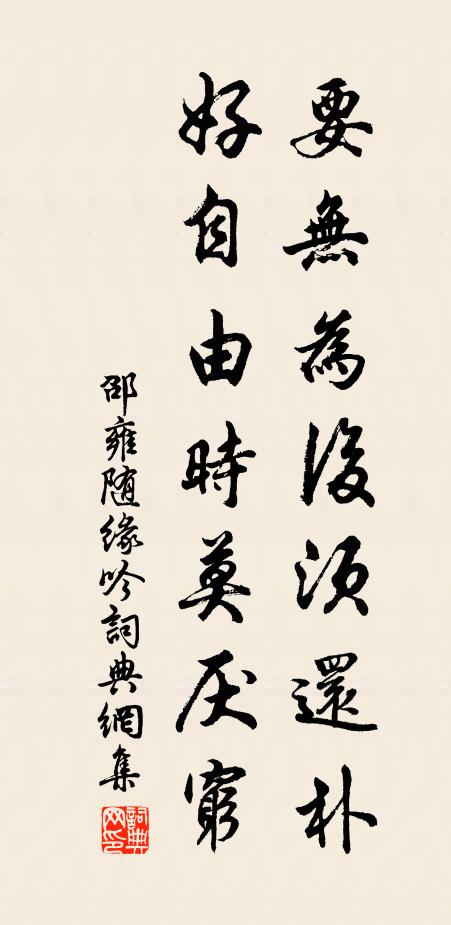 要無為後須還朴
好自由時莫厌窮
邵雍随缘吟詞典網集
詞典網印